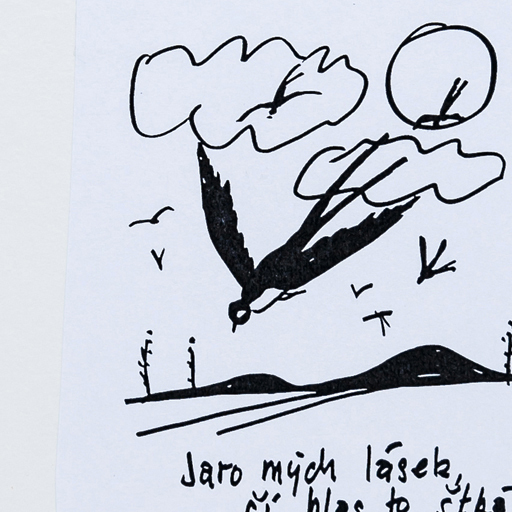 Jaro mých lásek,
čí hlas to štká